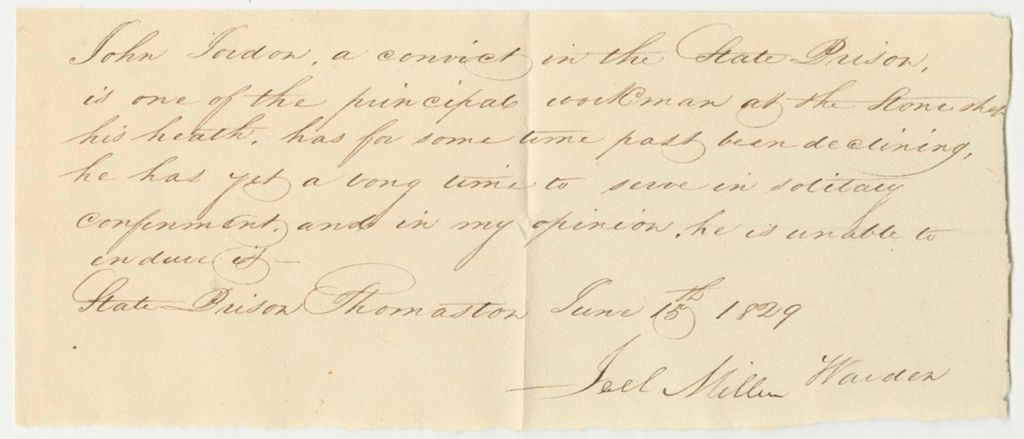 John Jordon, a convict in the State Prison,
is one of the principal workman at the Stone shop
his heath, has for some time past been declining,
he has yet a long time to serve in solitary
confinment, and in my opinion, he is unable to
enduce it —
State Prison Thomaston June 15th 1829
Joel Miller Warden